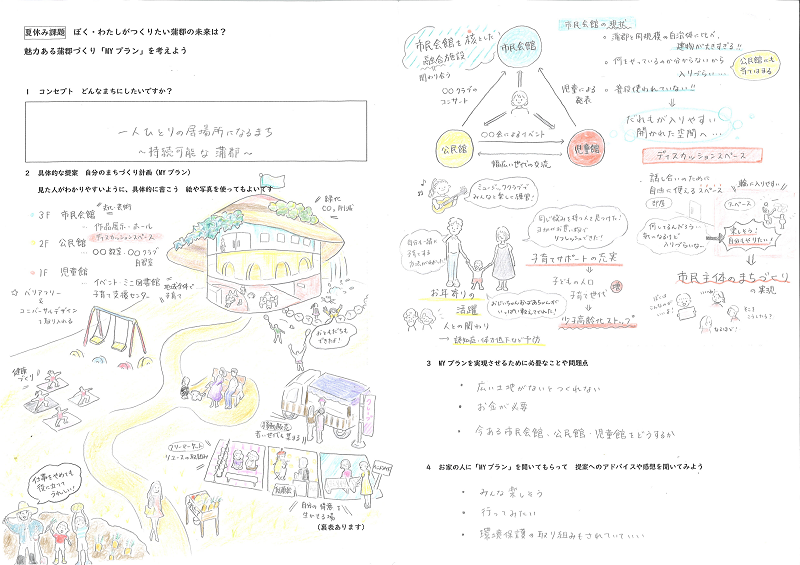 夏休み課題 ぼく・わたしがつくりたい蒲郡の未来は？
魅力ある蒲郡づくり「MYプラン」を考えよう
1 コンセプト どんなまちにしたいですか？
一人ひとりの居場所になるまち
～持続可能な蒲郡～
2 具体的な提案 自分のまちづくり計画（MYプラン）
見た人がわかりやすいように、具体的に書こう 絵や写真を使ってもよいです
3F 市民会館
作品展示・ホール
ディスカッションスペース
2F 公民館
〇〇教室・〇〇クラブ
自習室
1F 児童館
イベント・ミニ図書館
子育て支援センター
☆バリアフリー
ユニバーサルデザイン
で取り入れる
地域全体で
子育て
緑化
CO₂削減
おともだちも
できたよ！
健康
づくり
移動販売
若い世代も集まる
フリーマーケット
リユースの取組み
仕事をやめても
役に立てて
うれしい！
自分の特意を
生かせる場
（裏表あります）
市民会館を核とした
融合施設
関わり合う
市民会館
〇〇クラブの
コンサート
児童による
発表
〇〇会によるイベント
公民館
児童館
幅広い世代の交流
市民会館の現状
蒲郡と同規模の自治体にしては
建物が大きすぎる！！
何をやっているのか分からないから
入りづらい…
公民館にも
当てはまる
普段使われていない！！
だれもが入りやすい
開かれた空間へ…
ディスカッションスペース
話し合いのために
自由に使えるスペース
輪に入りやすい
部屋
スペース
何してるんだろう…
気になるけど
入りづらいな…
楽しそう！
自分もやりたい！
市民主体のまちづくり
の実現
なるほど！
ミュージッククラブで
みんなと楽しく演奏！
同じ悩みを持つ人と見つけた！
子育てサポートの充実
子どもの人口
子育て世代
増
少子高齢化ストップ
お年寄りの
活躍
おじいちゃんおばあちゃんが
いっぱい教えてくれた！
人との関わり
→ 認知症・体力低下など予防
3 MYプランを実現させるために必要なことや問題点
・ 広い土地がないとつくれない
・ お金が必要
・ 今ある市民会館、公民館・児童館をどうするか
4 お家の人に「MYプラン」を聞いてもらって 提案へのアドバイスや感想を聞いてみよう
・ みんな楽しそう
・ 行ってみたい
・ 環境保護の取り組みもされていていい